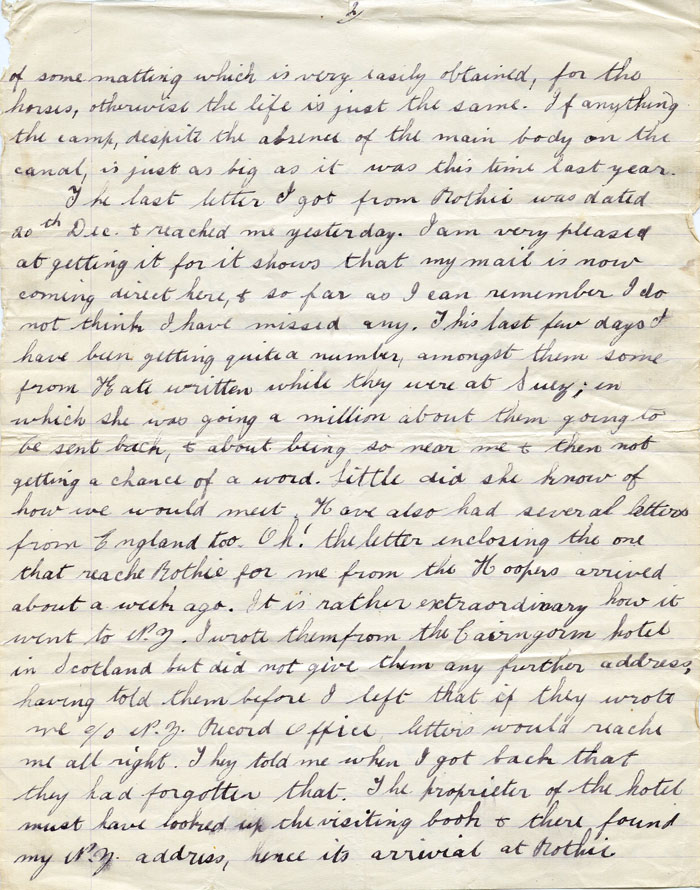 2
of some matting which is very easily obtained, for the
horses, otherwise the life is just the same. If anything
the camp, despite the absence of the main body on the
canal, is just as big as it was this time last year.
The last letter I got from Rothie was dated
20th Dec. & reached me yesterday. I am very pleased
at getting it for it shows that my mail is now
coming direct here, & so far as I can remember I do
not think I have missed any. This last few days I
have been getting quite a number, amongst them some
from Kate written while they were at Suez; in
which she was going a million about them going to
be sent back, & about being so near me & then not
getting a chance of a word. Little did she know of
how we would meet. Have also had several letters
from England too. Oh! the letter enclosing the one
that reache Rothie for me from the Hoopers arrived
about a week ago. It is rather extraordinary how it
went to N.Z. I wrote them from the Cairngorm hotel
in Scotland but did not give them any further address,
having told them before I left that if they wrote
me c/o N.Z. Record Office, letters would reache
me all right. They told me when I got back that
they had forgotten that. The proprieter of the hotel
must have looked up the visiting book & there found
my N.Z. address, hence its arrivial at Rothie